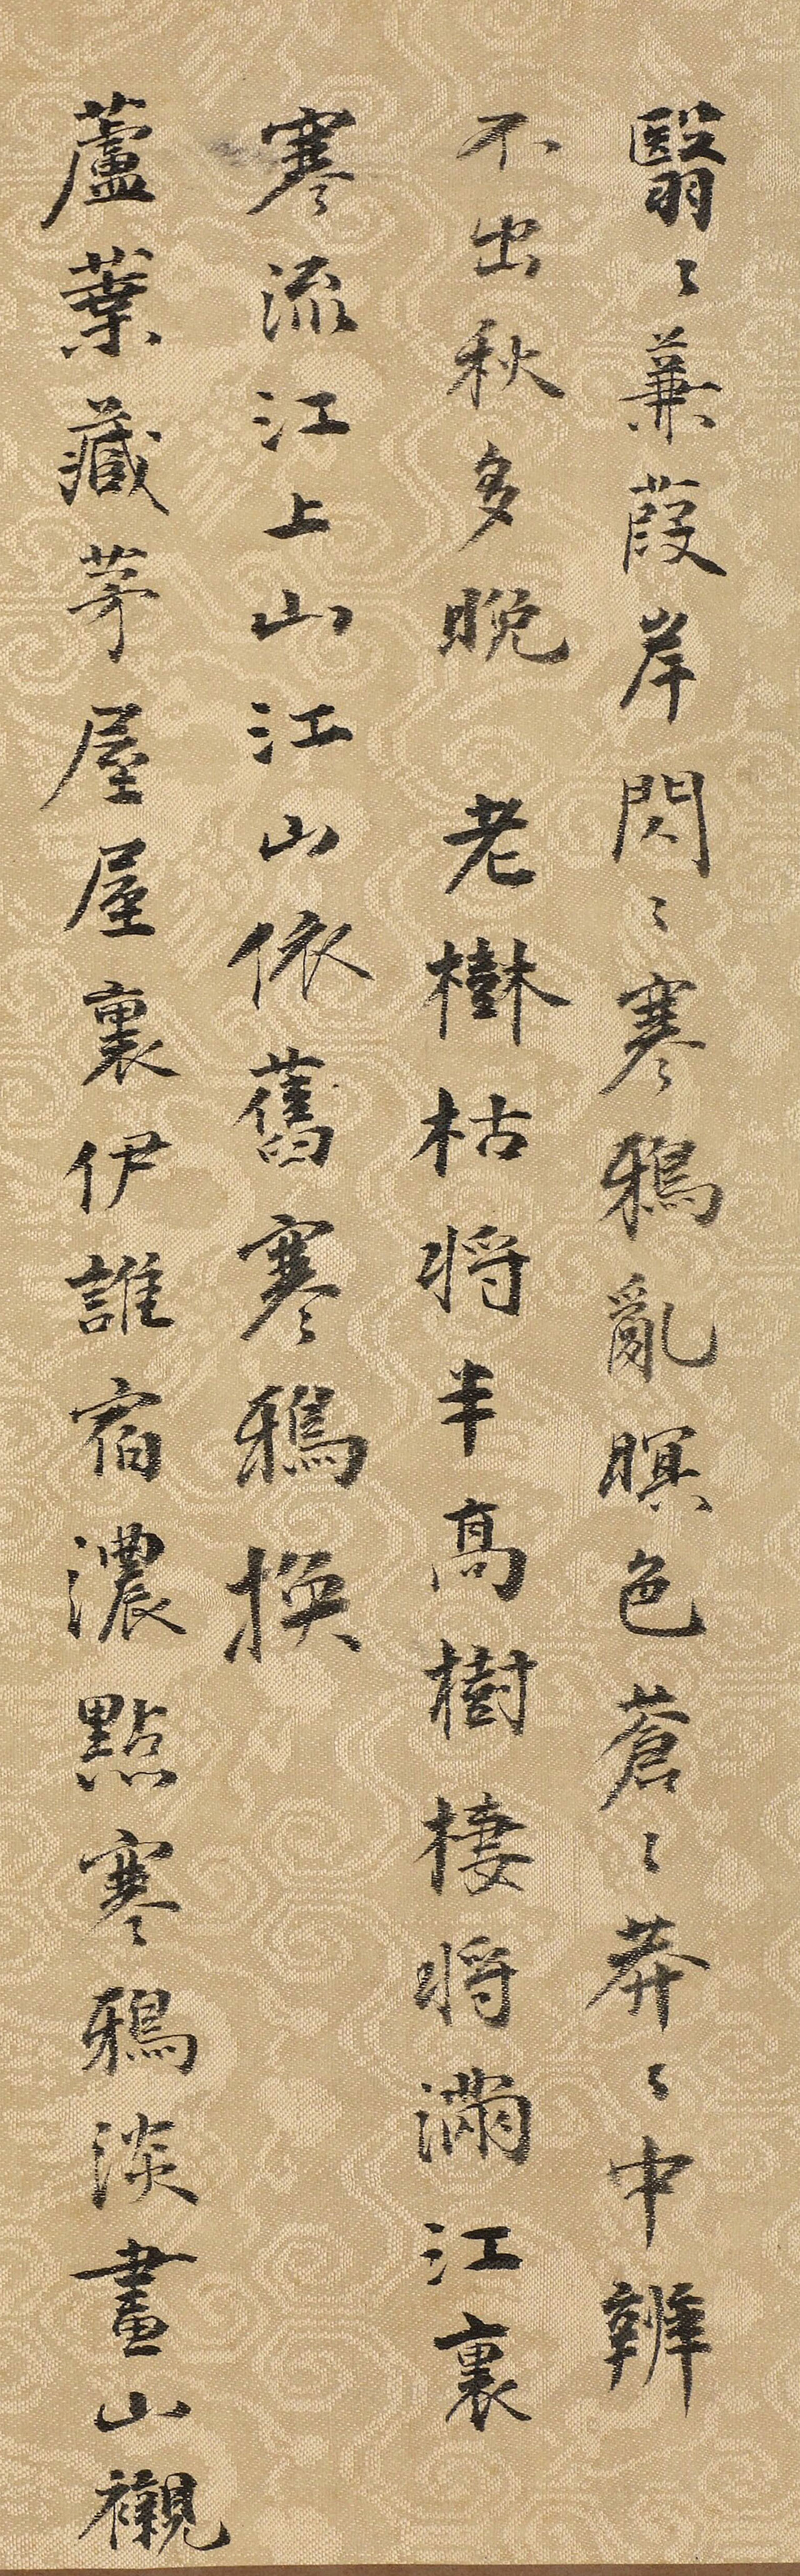 翳〻蒹葭岸閃〻寒鴉亂暝色蒼〻莽〻中辨
不出秋多晚　老樹枯将半高樹棲将滿江裏
寒流江上山江山依舊寒鴉換
蘆葉藏茅屋屋裏伊誰宿濃點寒鴉淡畫山襯